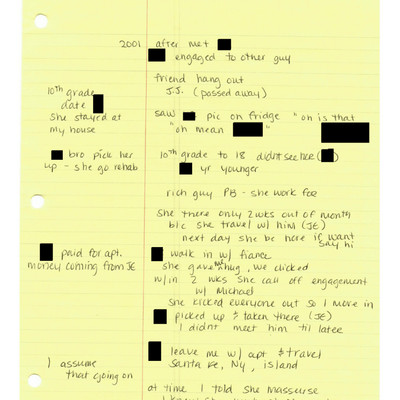 2001 after met
engaged to other guy
friend hang out
J.J. (passed away)
10th grade
date
she stayed at
my house
saw pic on fridge "oh is that
"oh mean
bro pick her
up - she go rehab
10th grade to 18 didnt see her ( )
yr younger
rich guy PB - she work foe
she there only 2 wks out of month
b/c she travel w/ him (JE)
next day she be here if want
say hi
paid for apt.
money coming from JE
walk in w/ fiance
she gave me hug, we clicked
w/in 2 wks she call off engagement
w/ Michael
she kicked everyone out so I move in
picked up & taken there (JE)
I didnt meet him til later
I assume
that going on
leave me w/ apt & travel
Santa Fe, NY, island
at time I told she masseuse